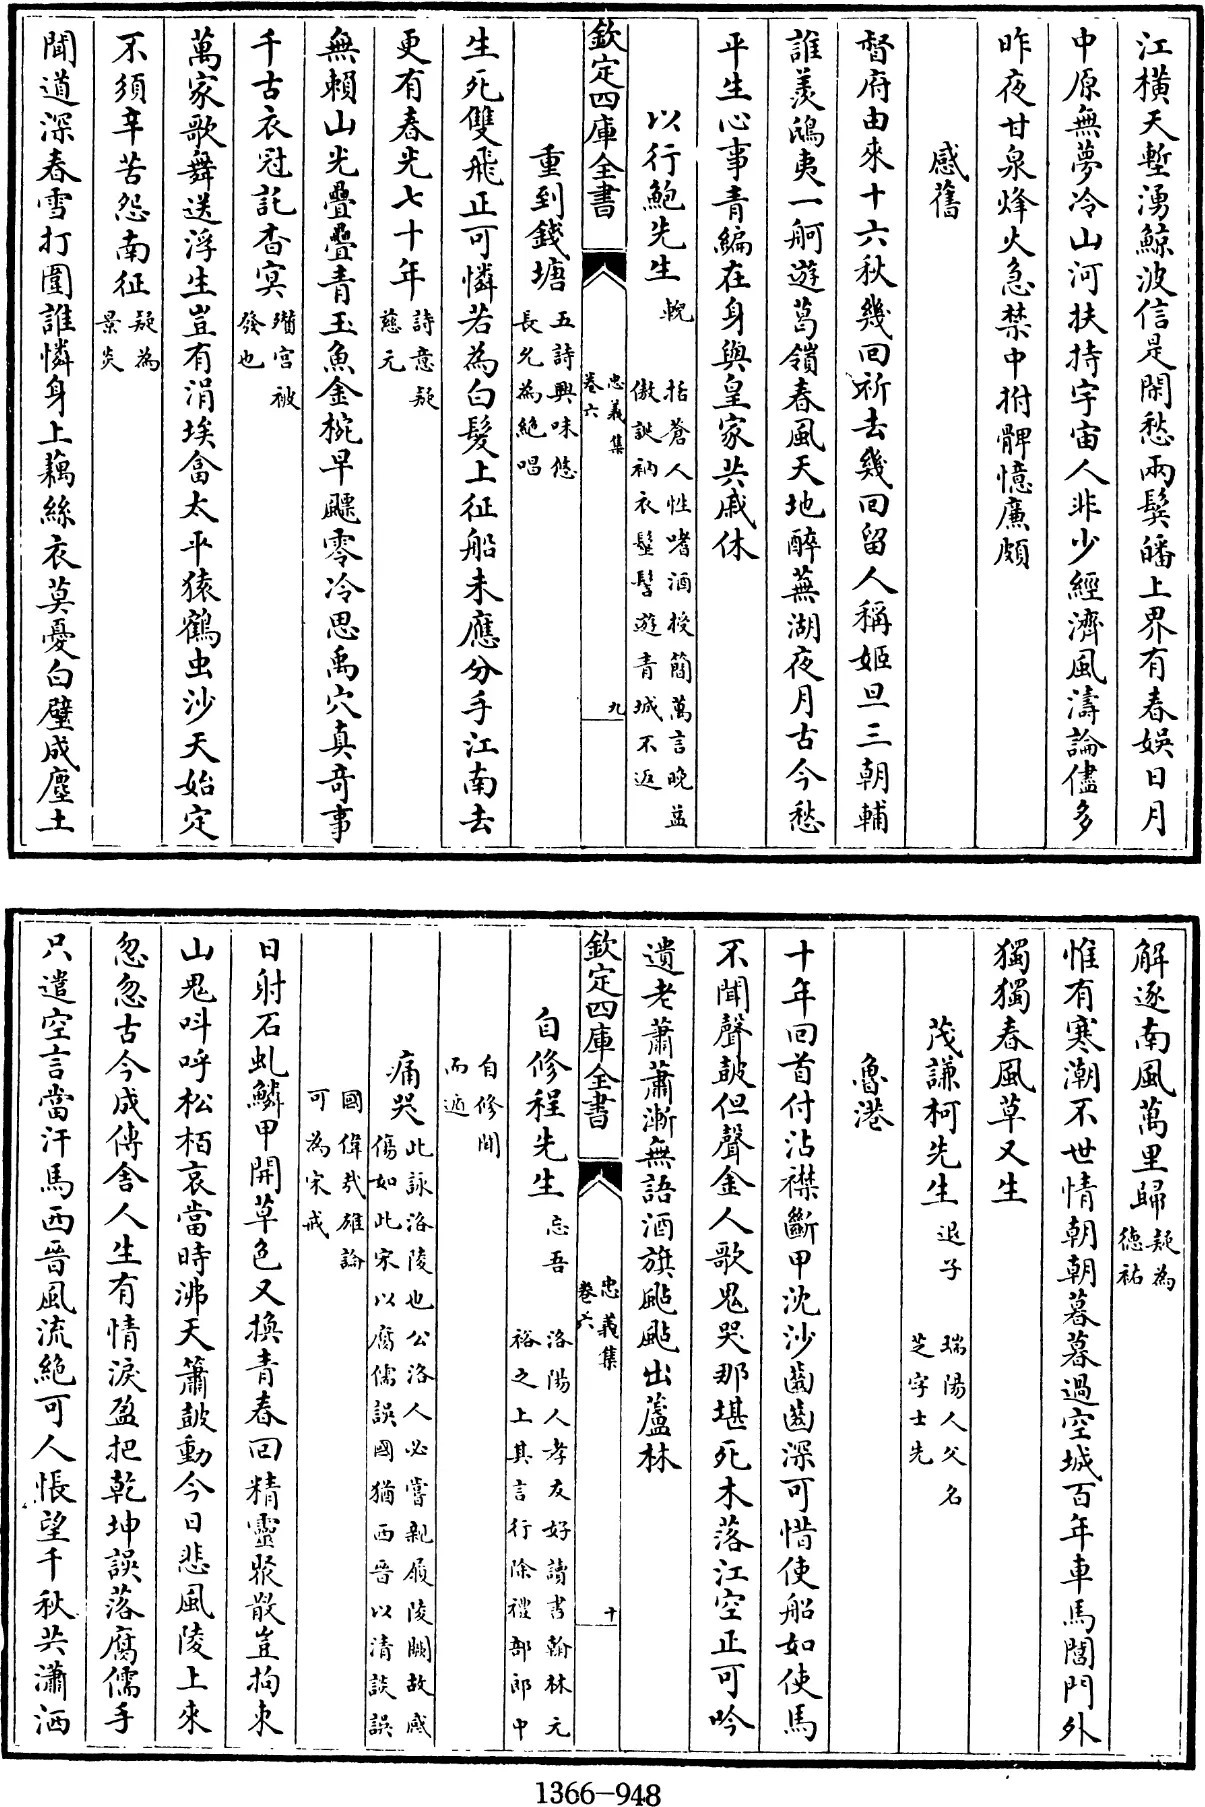 江橫天塹湧鯨波信是閑愁兩鬢皤上界有春娛日月
中原無夢冷山河扶持宇宙人非少經濟風濤論儘多
昨夜甘泉烽火急禁中拊髀憶廉頗
感舊
督府由來十六秋幾回祈去幾回留人稱姬旦三朝輔
誰羨鴟夷一舸遊葛嶺春風天地醉蕪湖夜月古今愁
平生心事青編在身與皇家共戚休
以行鮑先生 輗 括蒼人性嗜酒授簡萬言晚益
傲誕衲衣髽髻遊青城不返
欽定四庫全書
忠義集
卷六
九
重到錢塘 五詩興味悠
長允為絕唱
生死雙飛正可憐若為白髮上征船未應分手江南去
更有春光七十年 詩意疑
慈元
無賴山光疊疊青玉魚金椀早飄零冷思禹穴真奇事
千古衣冠託杳冥 攢宮被
發也
萬家歌舞送浮生豈有涓埃畣太平猿鶴虫沙天始定
不須辛苦怨南征 疑為
景炎
聞道深春雪打圍誰憐身上藕絲衣莫憂白璧成塵土
解逐南風萬里歸 疑為
德祐
惟有寒潮不世情朝朝暮暮過空城百年車馬閶門外
獨獨春風草又生
茂謙柯先生 退子 瑞陽人父名
芝字士先
魯港
十年回首付沾襟斷甲沈沙齒齒深可惜使船如使馬
不聞聲鼓但聲金人歌鬼哭那堪死木落江空正可吟
遺老蕭蕭漸無語酒旗颭颭出蘆林
欽定四庫全書
忠義集
卷六
十
自修程先生 忘吾 洛陽人孝友好讀書翰林元
裕之上其言行除禮部郎中
自修聞
而遁
痛哭 此詠洛陵也公洛人必嘗親履陵闕故感
傷如此宋以腐儒誤國猶西晉以清談誤
國偉哉雄論
可為宋戒
日射石虬鱗甲開草色又換青春回精靈聚散豈拘束
山鬼呌呼松栢哀當時沸天簫鼓動今日悲風陵上來
忽忽古今成傳舍人生有情淚盈把乾坤誤落腐儒手
只遣空言當汗馬西晉風流絕可人悵望千秋共瀟洒
1366-948